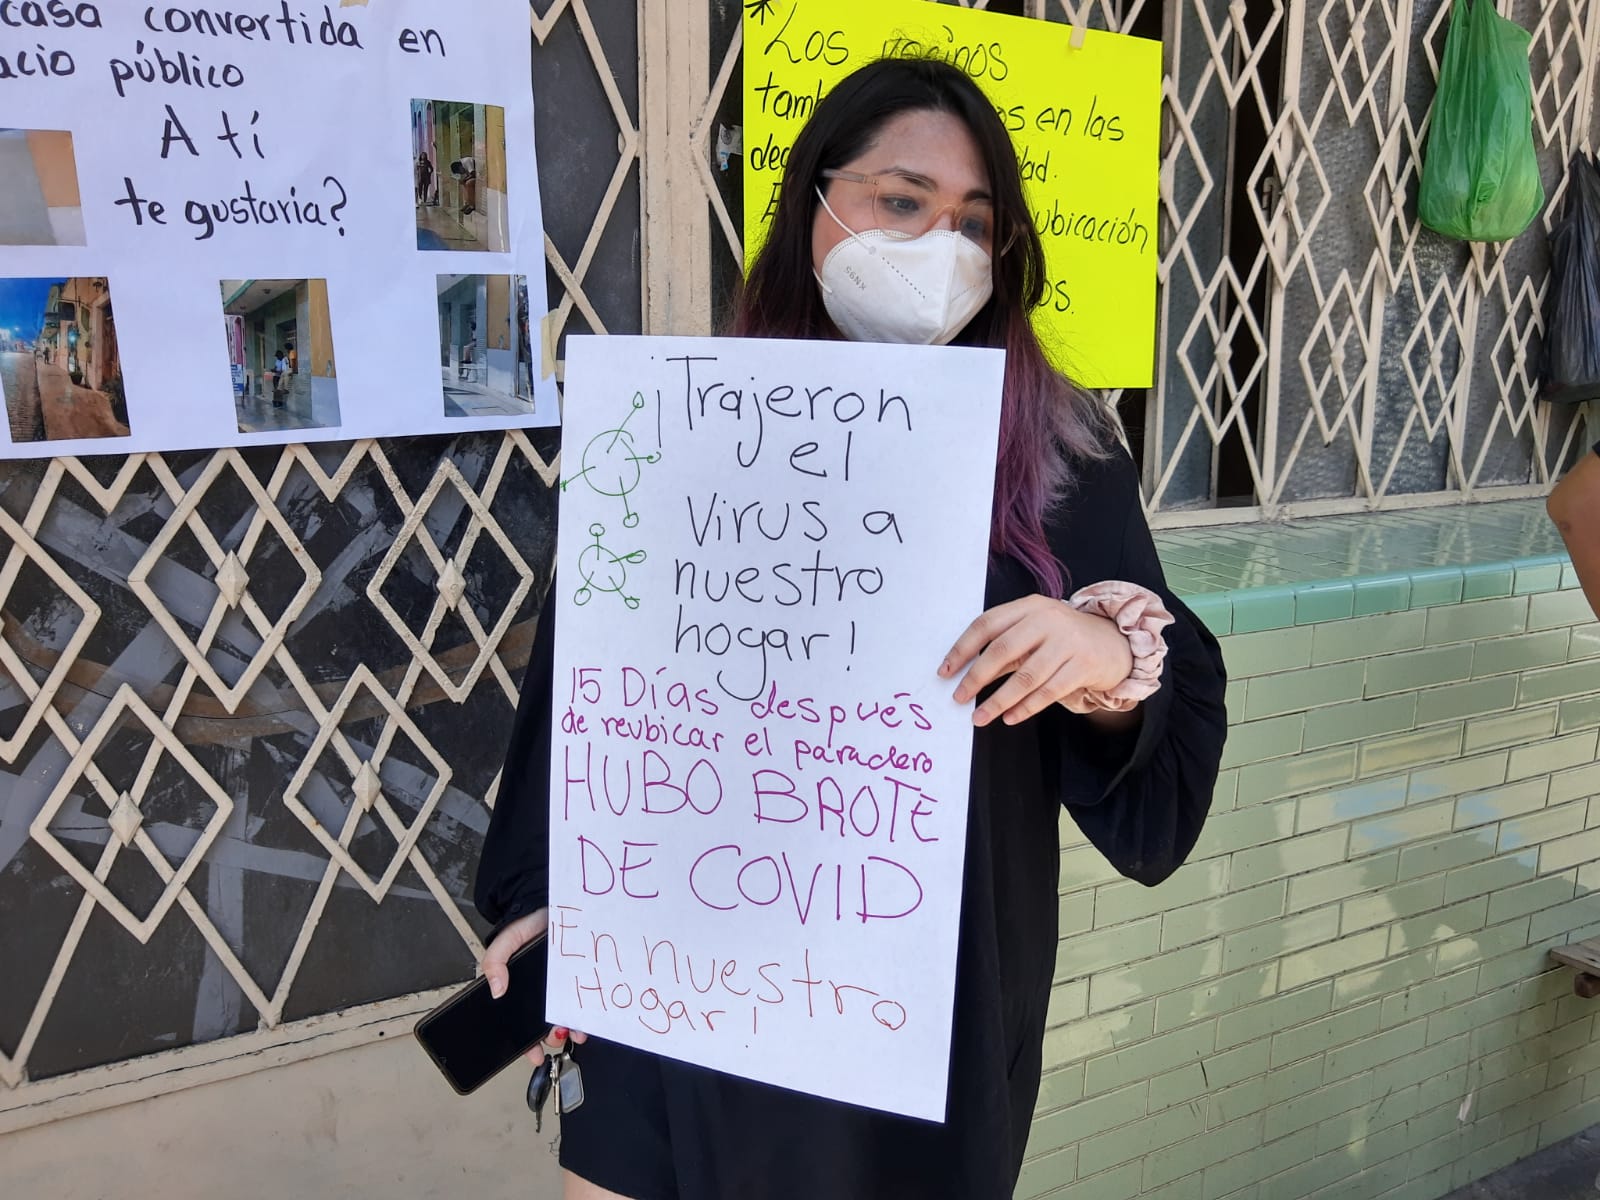 casa convertida en
acio público
A tí
te gustaria?
*Los vecinos
en las
ubicación
KN95
¡Trajeron
el
virus a
nuestro
hogar!
15 Días después
de reubicar el paradero
HUBO BROTE
DE COVID
¡En nuestro
Hogar!